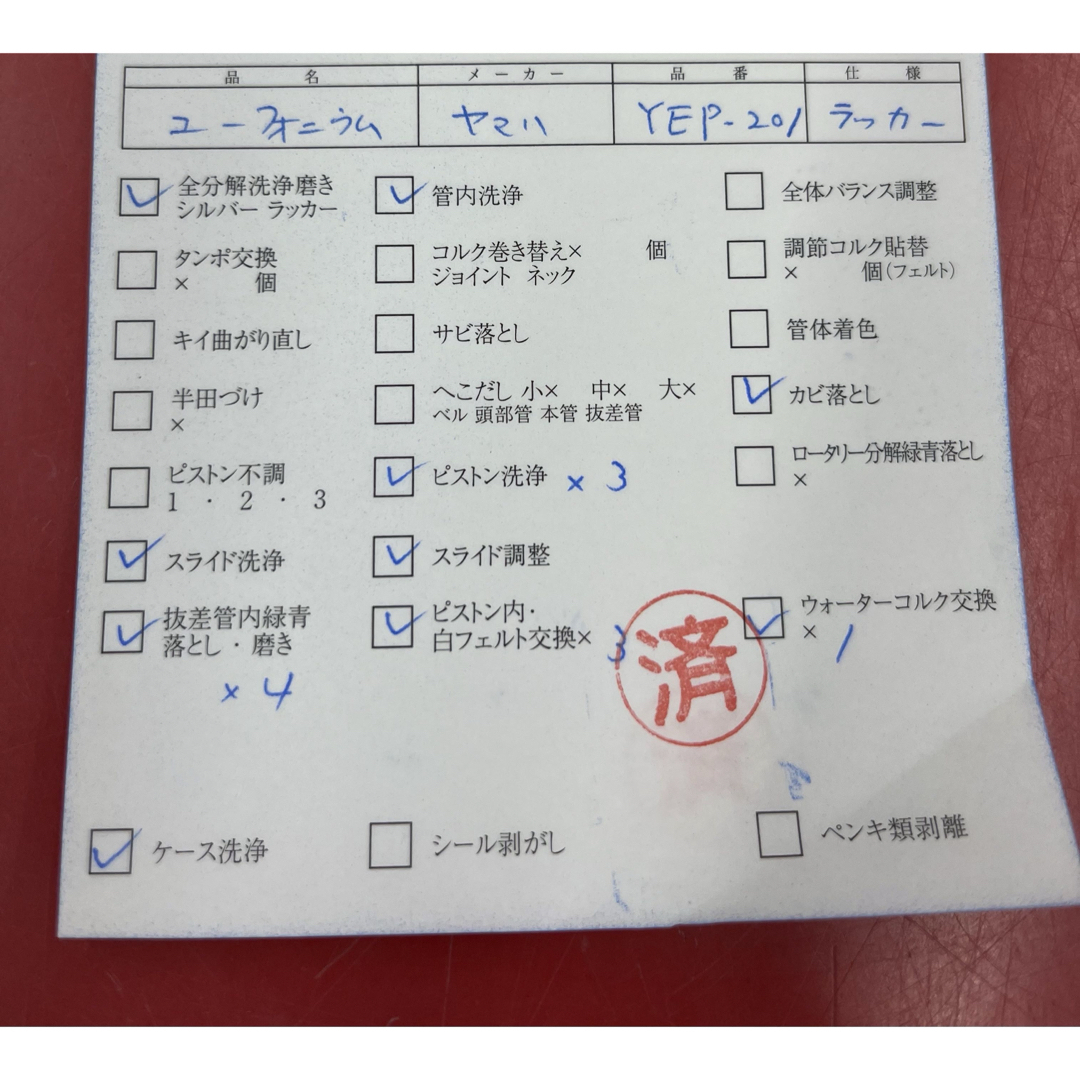 品名 メーカー 品番 仕様
ユーフォニウム ヤマハ YEP-201 ラッカー
全分解洗浄磨き
シルバー ラッカー
管内洗浄
全体バランス調整
タンポ交換
× 個
コルク巻き替え× 個
ジョイント ネック
調節コルク貼替
× 個(フェルト)
キイ曲がり直し
サビ落とし
管体着色
半田づけ
×
へこだし 小× 中× 大×
ベル 頭部管 本管 抜差管
カビ落とし
ピストン不調
1・2・3
ピストン洗浄 × 3
ロータリー分解緑青落とし
×
スライド洗浄
スライド調整
抜差管内緑青
落とし・磨き
× 4
ピストン内・
白フェルト交換× 3
済
ウォーターコルク交換
× 1
ケース洗浄
シール剥がし
ペンキ類剥離